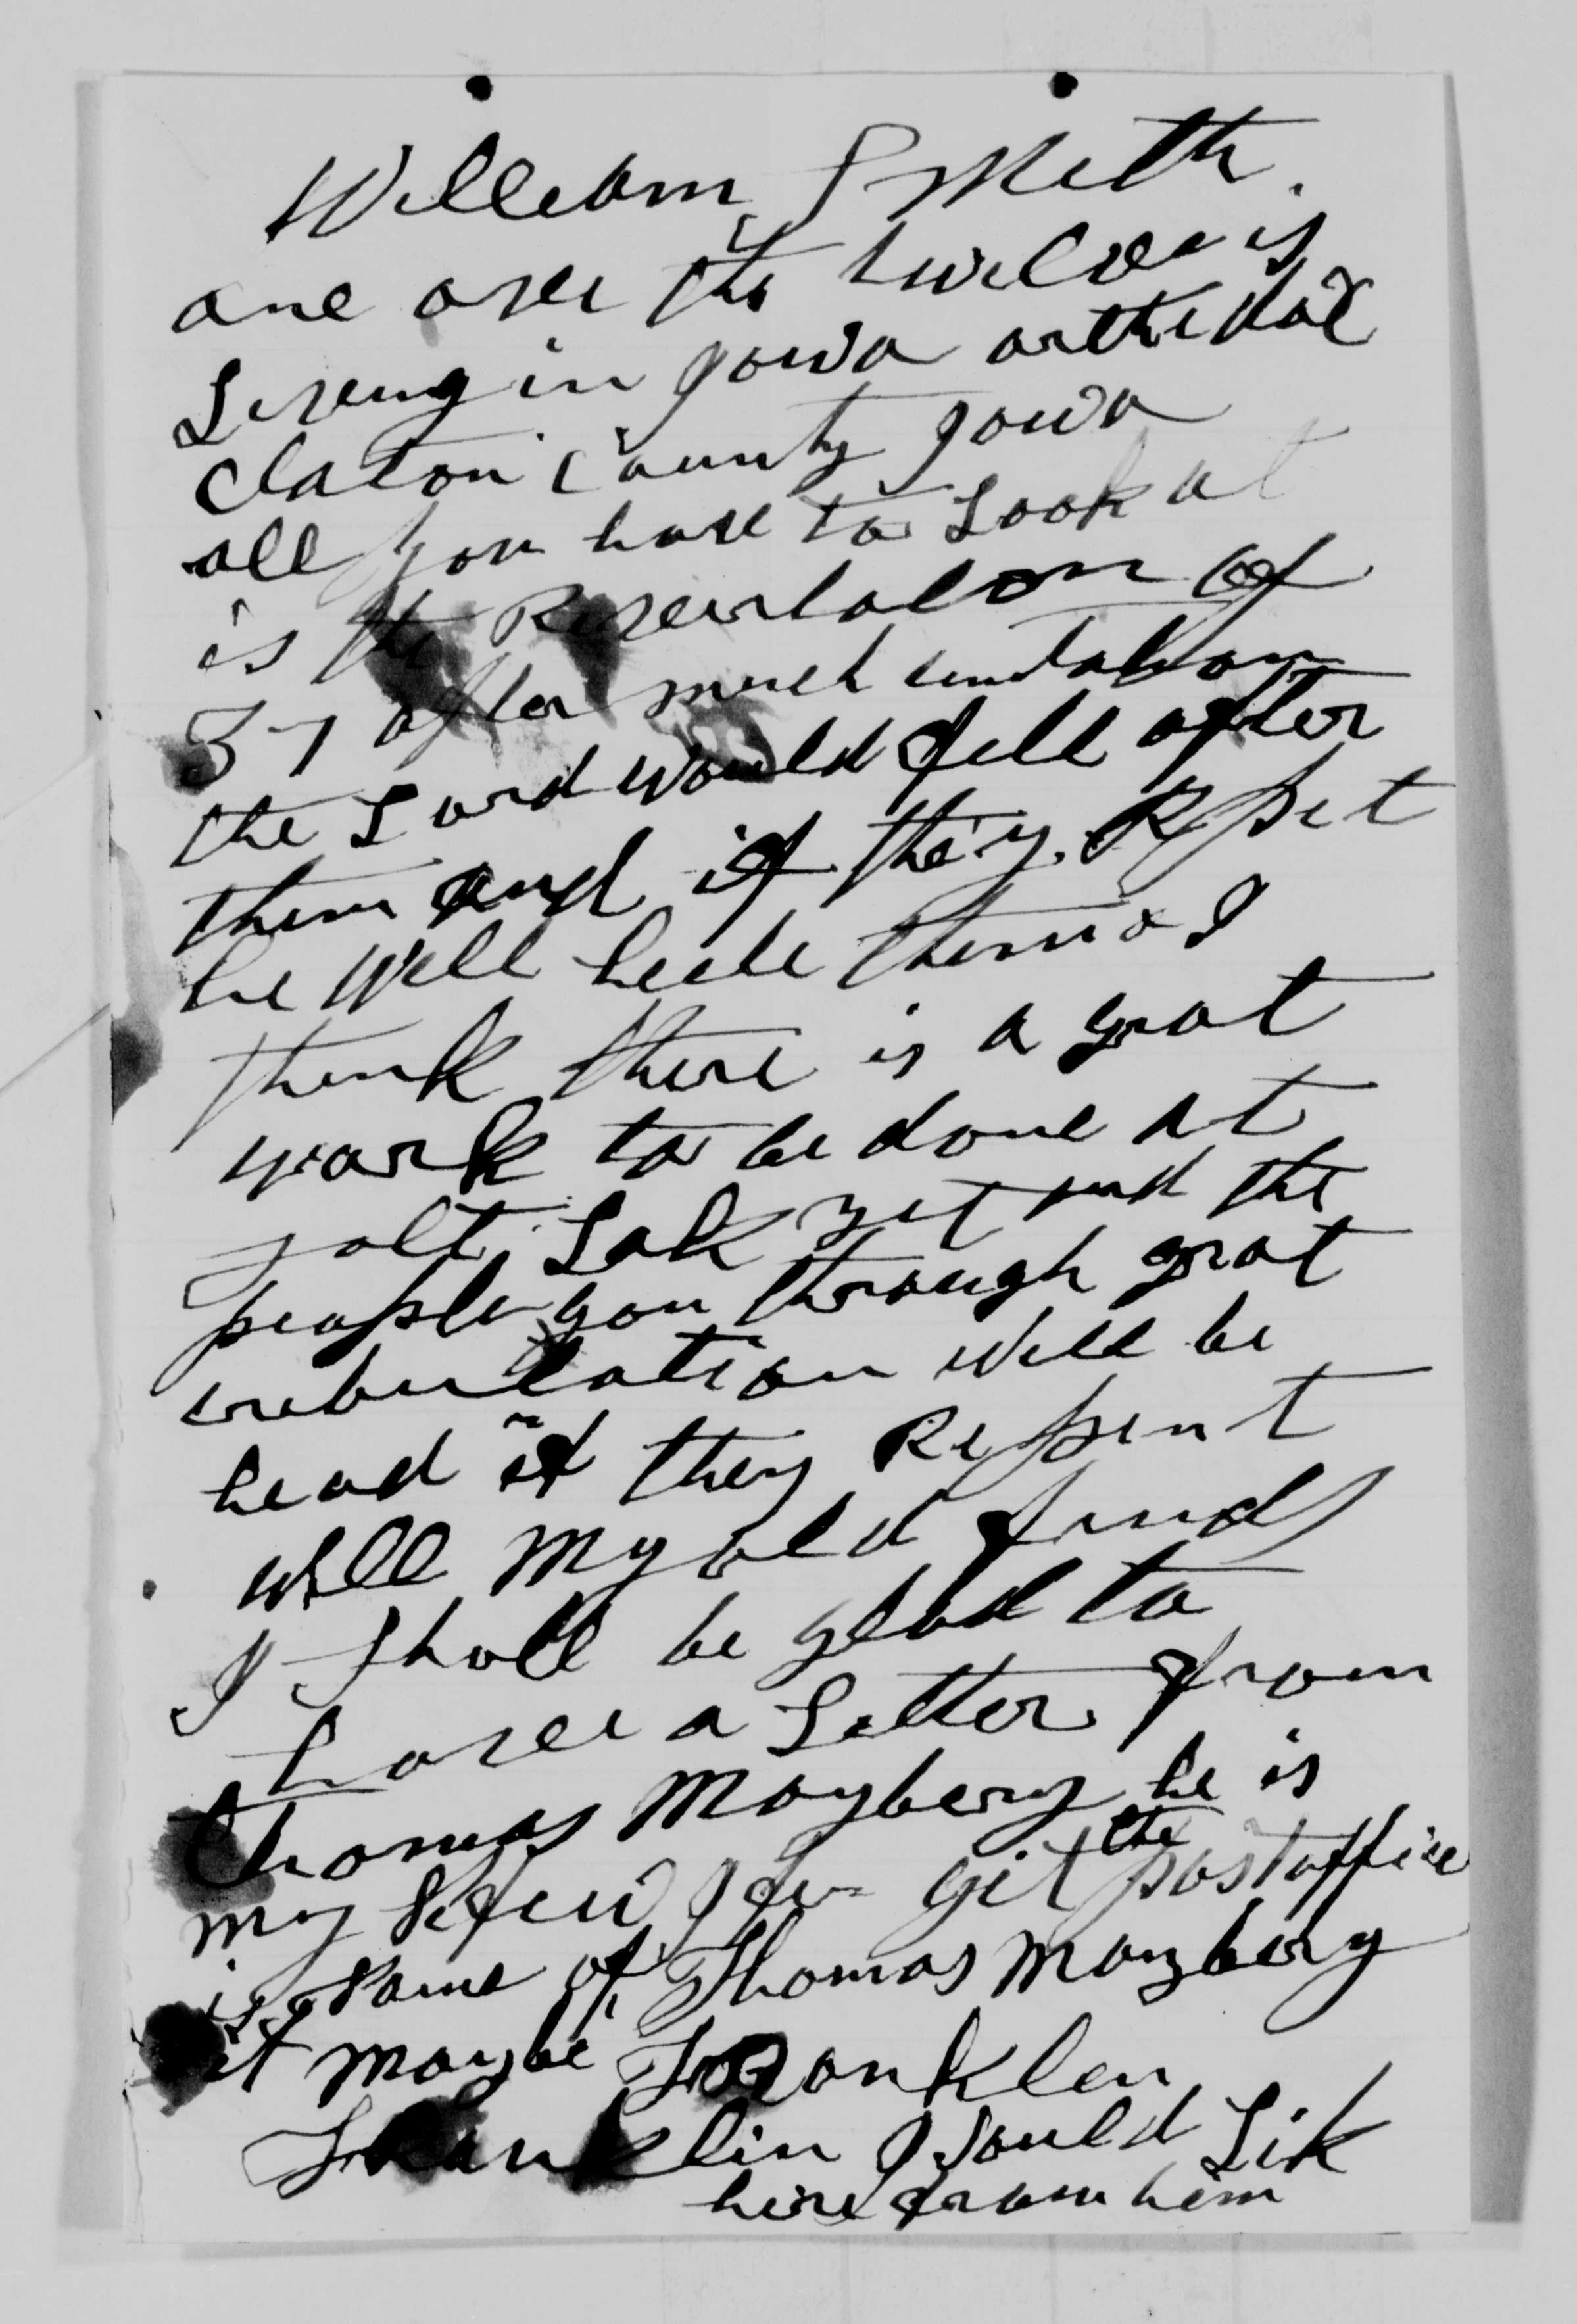 William Smith.
one over the twelve is
Liveing in Jowa
Claton County Jowa
all you have to Look at
is the Reverlalon of
37 after much
the Lord would fell after
them and if they Repet
he Will heele them & I
think there is a grat
work to be done at
salt Lak yet and the
people you through grat
trebulation will be
head if they Repent
will my old frind
I Shall be glad to
have a Letter from
thomas Mayberry he is
my git the postoffice
is name of Thomas Mayberry
it maybe Franklen
Franklin I would Lik
hire from him